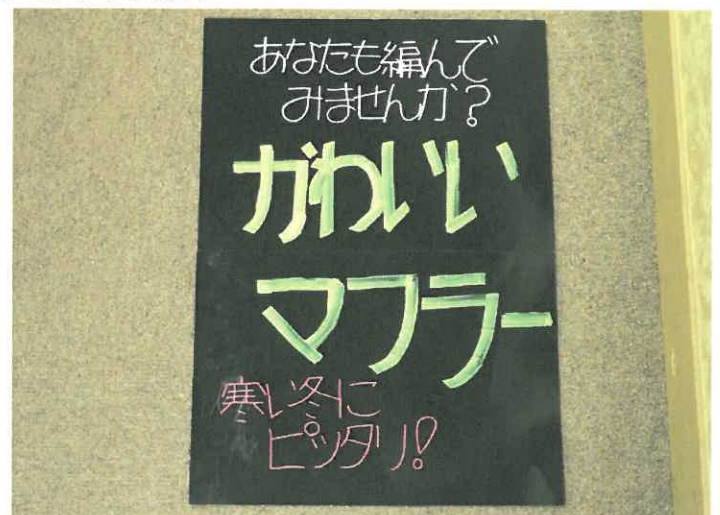 あなたも編んで
みませんか?
かわいい
マフラー
寒い冬に
ピッタリ!